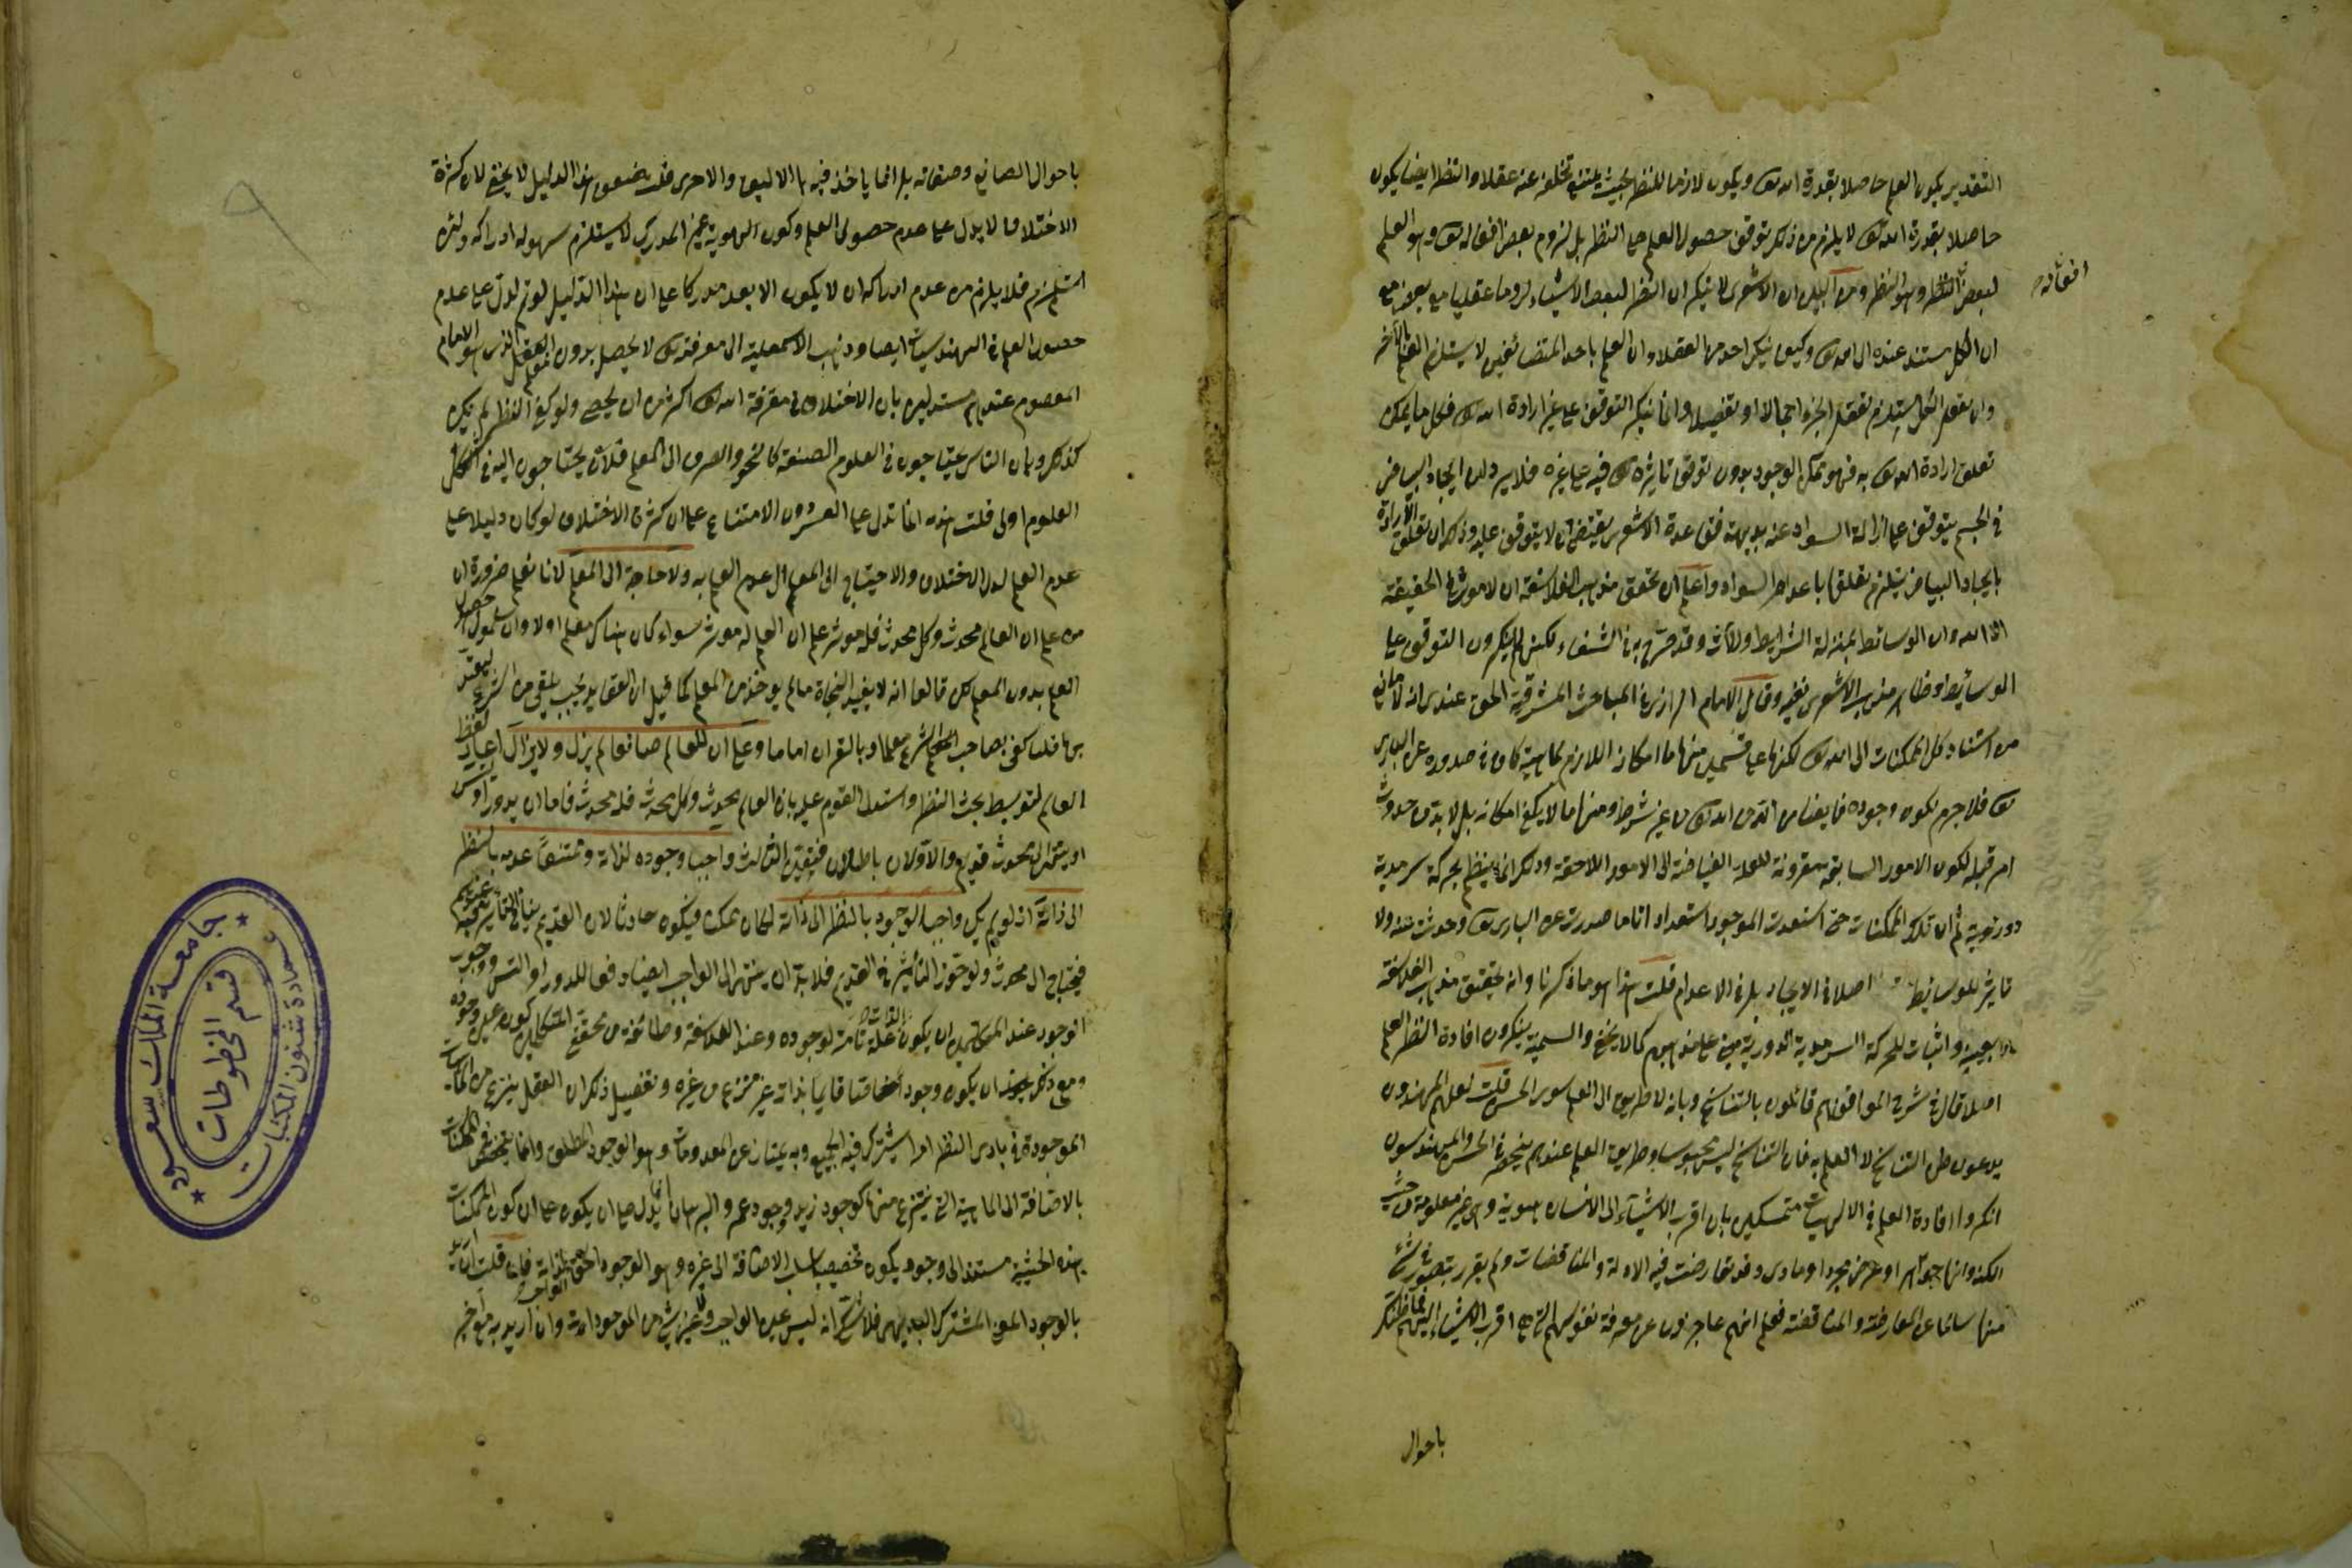 التقدير يكون العلم حاصلا بقدرة الله تعالى ويكون لازما للنظر بحيث يمتنع تخلفه عنه عقلا والنظر ايضا يكون
حاصلا بقدرة الله تعالى لا يلزم من ذلك توقف حصول العلم على النظر بل لزوم بعض افعاله تعالى وهو العلم
لبعض وهو النظر ومن البين ان الاشعري لا ينكر ان النظر لبعض الاشياء لزوما عقليا مع بعض مع
افعاله
ان الكل مستند عنده الى الله تعالى وكيف ينكر احد من العقلاء ان العلم باحد المتضائفين لا يستلزم العلم بالآخر
وان تعقل الكل يستلزم تعقل الجزء اجمالا او تفصيلا وانما ينكر التوقف على غير ارادة الله تعالى فكل ما يمكن
تعلق ارادة الله تعالى به فهو ممكن الوجود بدون توقف تاثيره تعالى فيه على غيره فلا يرد ان ايجاد البياض
في الجسم يتوقف على ازالة السواد عنه بديهة فقاعدة الاشعري يقتضي ان لا يتوقف عليه وذلك ان تعلق الارادة
بايجاد البياض يستلزم تعلقها باعدام السواد واعلم ان محقق مذهب الفلاسفة ان لا موثر في الحقيقة
الا الله وان الوسائط بمنزلة الشرايط والآلات وقد صرح به في الشفاء لكنهم لا ينكرون التوقف على
الوسائط وظاهر مذهب الاشعري نفيه وقال الامام الرازي في المباحث المشرقية الحق عندي انه لا مانع
من استناد كل الممكنات الى الله تعالى لكنها على قسمين منها ما امكانه اللازم لماهيته كاف في صدوره عن الباري
تعالى فلا جرم يكون وجوده فايضا من الله تعالى من غير شرط ومنها ما لا يكفي امكانه بل لا بد من حدوث
امر قبله لكون الامور السابقة مقربة للعلة الفياضة الى الامور اللاحقة وذلك انما ينتظم بحركة سرمدية
دورية ثم ان تلك الممكنات متى استعدت للوجود استعدادا تاما صدرت عن الباري تعالى وحدثت عنه ولا
تاثير للوسائط اصلا في الايجاد بل في الاعدام قلت هذا هو ما ذكرنا وانه تحقيق مذهب الفلاسفة
بعينه واثبات للحركة السرمدية الدورية مبني على مذهبهم كما لا يخفى والسمنية ينكرون افادة النظر العلم
اصلا قال في شرح المواقف انهم قائلون بالتناسخ وبانه لا طريق الى العلم سوى الحس قلت لعلهم
يدعون ظن التناسخ لا العلم به فان التناسخ ليس محسوسا وطريق العلم عندهم ينحصر في الحس والمهندسون
انكروا افادة العلم في الالهيات متمسكين بان اقرب الاشياء الى الانسان هويته وهي غير معلومة من حيث
الكنه وانها جوهر او عرض مجرد او مادي وقد تعارضت فيه الادلة والمناقضات ولم يقرر شيء
منها سالما عن المعارضة والمناقضة فعلم انهم عاجزون عن معرفة نفوسهم التي هي اقرب الاشياء اليهم فما ظنك
باحوال
باحوال الصانع وصفاته بل انما ياخذ فيه بالاليق والاحرى قلت ضعف هذا الدليل لا يخفى لان كثرة
الاختلاف لا يدل على عدم حصول العلم وكون الهوية غير المدرك لا يستلزم سهولة ادراكه ولئن
استلزم فلا يلزم من عدم ادراكه ان لا يكون الابعد مدركا على ان هذا الدليل لو تم لدل على عدم
حصول العلم في الهندسيات ايضا وذهب الاسمعيلية الى ان معرفته تعالى لا يحصل بدون المعلم الذي هو الامام
المعصوم عندهم مستدلين بان الاختلاف في معرفة الله تعالى اكثر من ان يحصى ولو كفى النظر لم يكن
كذلك وبان الناس يحتاجون في العلوم الضعيفة كالنحو والصرف الى المعلم فلأن يحتاجون اليه في اشكل
العلوم اولى قلت هذه انما تدل على العسر دون الامتناع على ان كثرة الاختلاف لو كان دليلا على
عدم العلم لدل الاختلاف والاحتياج الى المعلم الى عدم العلم به ولا حاجة الى المعلم لانا نعلم ضرورة ان
من علم ان العالم محدث وكل محدث فله موثر علم ان العالم له موثر سواء كان هناك معلم او لا وان سلموا حصول
العلم بدون المعلم لكن قالوا انه لا يفيد النجاة ما لم يوخذ من المعلم كما قيل ان العقايد يجب تلقى من الشرع ليعتد
بها قلت كفى بصاحب الشرع معلما وبالقرآن اماما وعلى ان للعالم صانعا لم يزل ولا يزال اعيد لفظ
العالم لتوسيط بحث النظر واستدل القوم عليه بان العالم محدث وكل محدث فله محدث فاما ان يدور او يتس
او ينتهي الى محدث قديم والاولان باطلان فتعين الثالث واجبا وجوده لذاته وممتنعا عدمه بالنظر
الى ذاته اذ لو لم يكن واجب الوجود بالنظر الى ذاته لكان ممكنا فيكون حادثا لان القديم ينافي التاثير فيه عندهم
فيحتاج الى محدث ولو جوز التاثير في القديم فلا بد ان ينتهي الى الواجب ايضا دفعا للدور او التس ووجوب
الوجود عند المتكلمين ان يكون الذات علة تامة لوجوده وعند الفلاسفة وطائفة من محققي المتكلمين كونه عين وجوده
ومعنى ذلك ان يكون وجودا خاصا قايما بذاته غير منتزع من غيره وتفصيل ذلك ان العقل ينتزع من الماهيات
الموجودة في بادي النظر امرا يشترك فيه الجميع وبه يمتاز عن المعدومات وهو الوجود المطلق وانما يتخصص في الممكنات
بالاضافة الى الماهية التي ينتزع منها كوجود زيد ووجود عمرو والبرهان انما يدل على ان يكون كون الممكنات
بهذه الحيثية مستندا الى وجود يكون تخصيصه بسلب الاضافة الى غيره وهو الوجود الحق الواجب لذاته فان قلت ان اريد
بالوجود المعنى المشترك البديهي فلا شك انه ليس عين الواجب ولا عين شيء من الموجودات وان اريد به معنى آخر
جامعة الملك سعود
عمادة شئون المكتبات
قسم المخطوطات